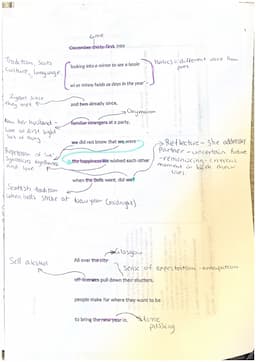 time
December thirty-first, 1993
Tradition, Scots
culture, language
looking into a mirror to see a book
w/ as many fields as days in the year
Poetics - different voice from
poet
2 years since
they met
and two already since,
Oxymoron
Now her husband -
love at first sight
familiar strangers at a party,
we did not know that we were
Repetition of 'we'
symbolises togetherness
and love
the happiness we wished each other
when the Bells went, did we?
Reflective - she addresses
partner - uncertain future
- reminiscing - crucial
moment in both their
lives
Scottish tradition
when bells strike at New year (midnight)
Glasgow
All over the city
Sell alcohol
sense of expectation - anticipation
off-licenses pull down their shutters,
people make for where they want to be
to bring the new year in.
time
passing